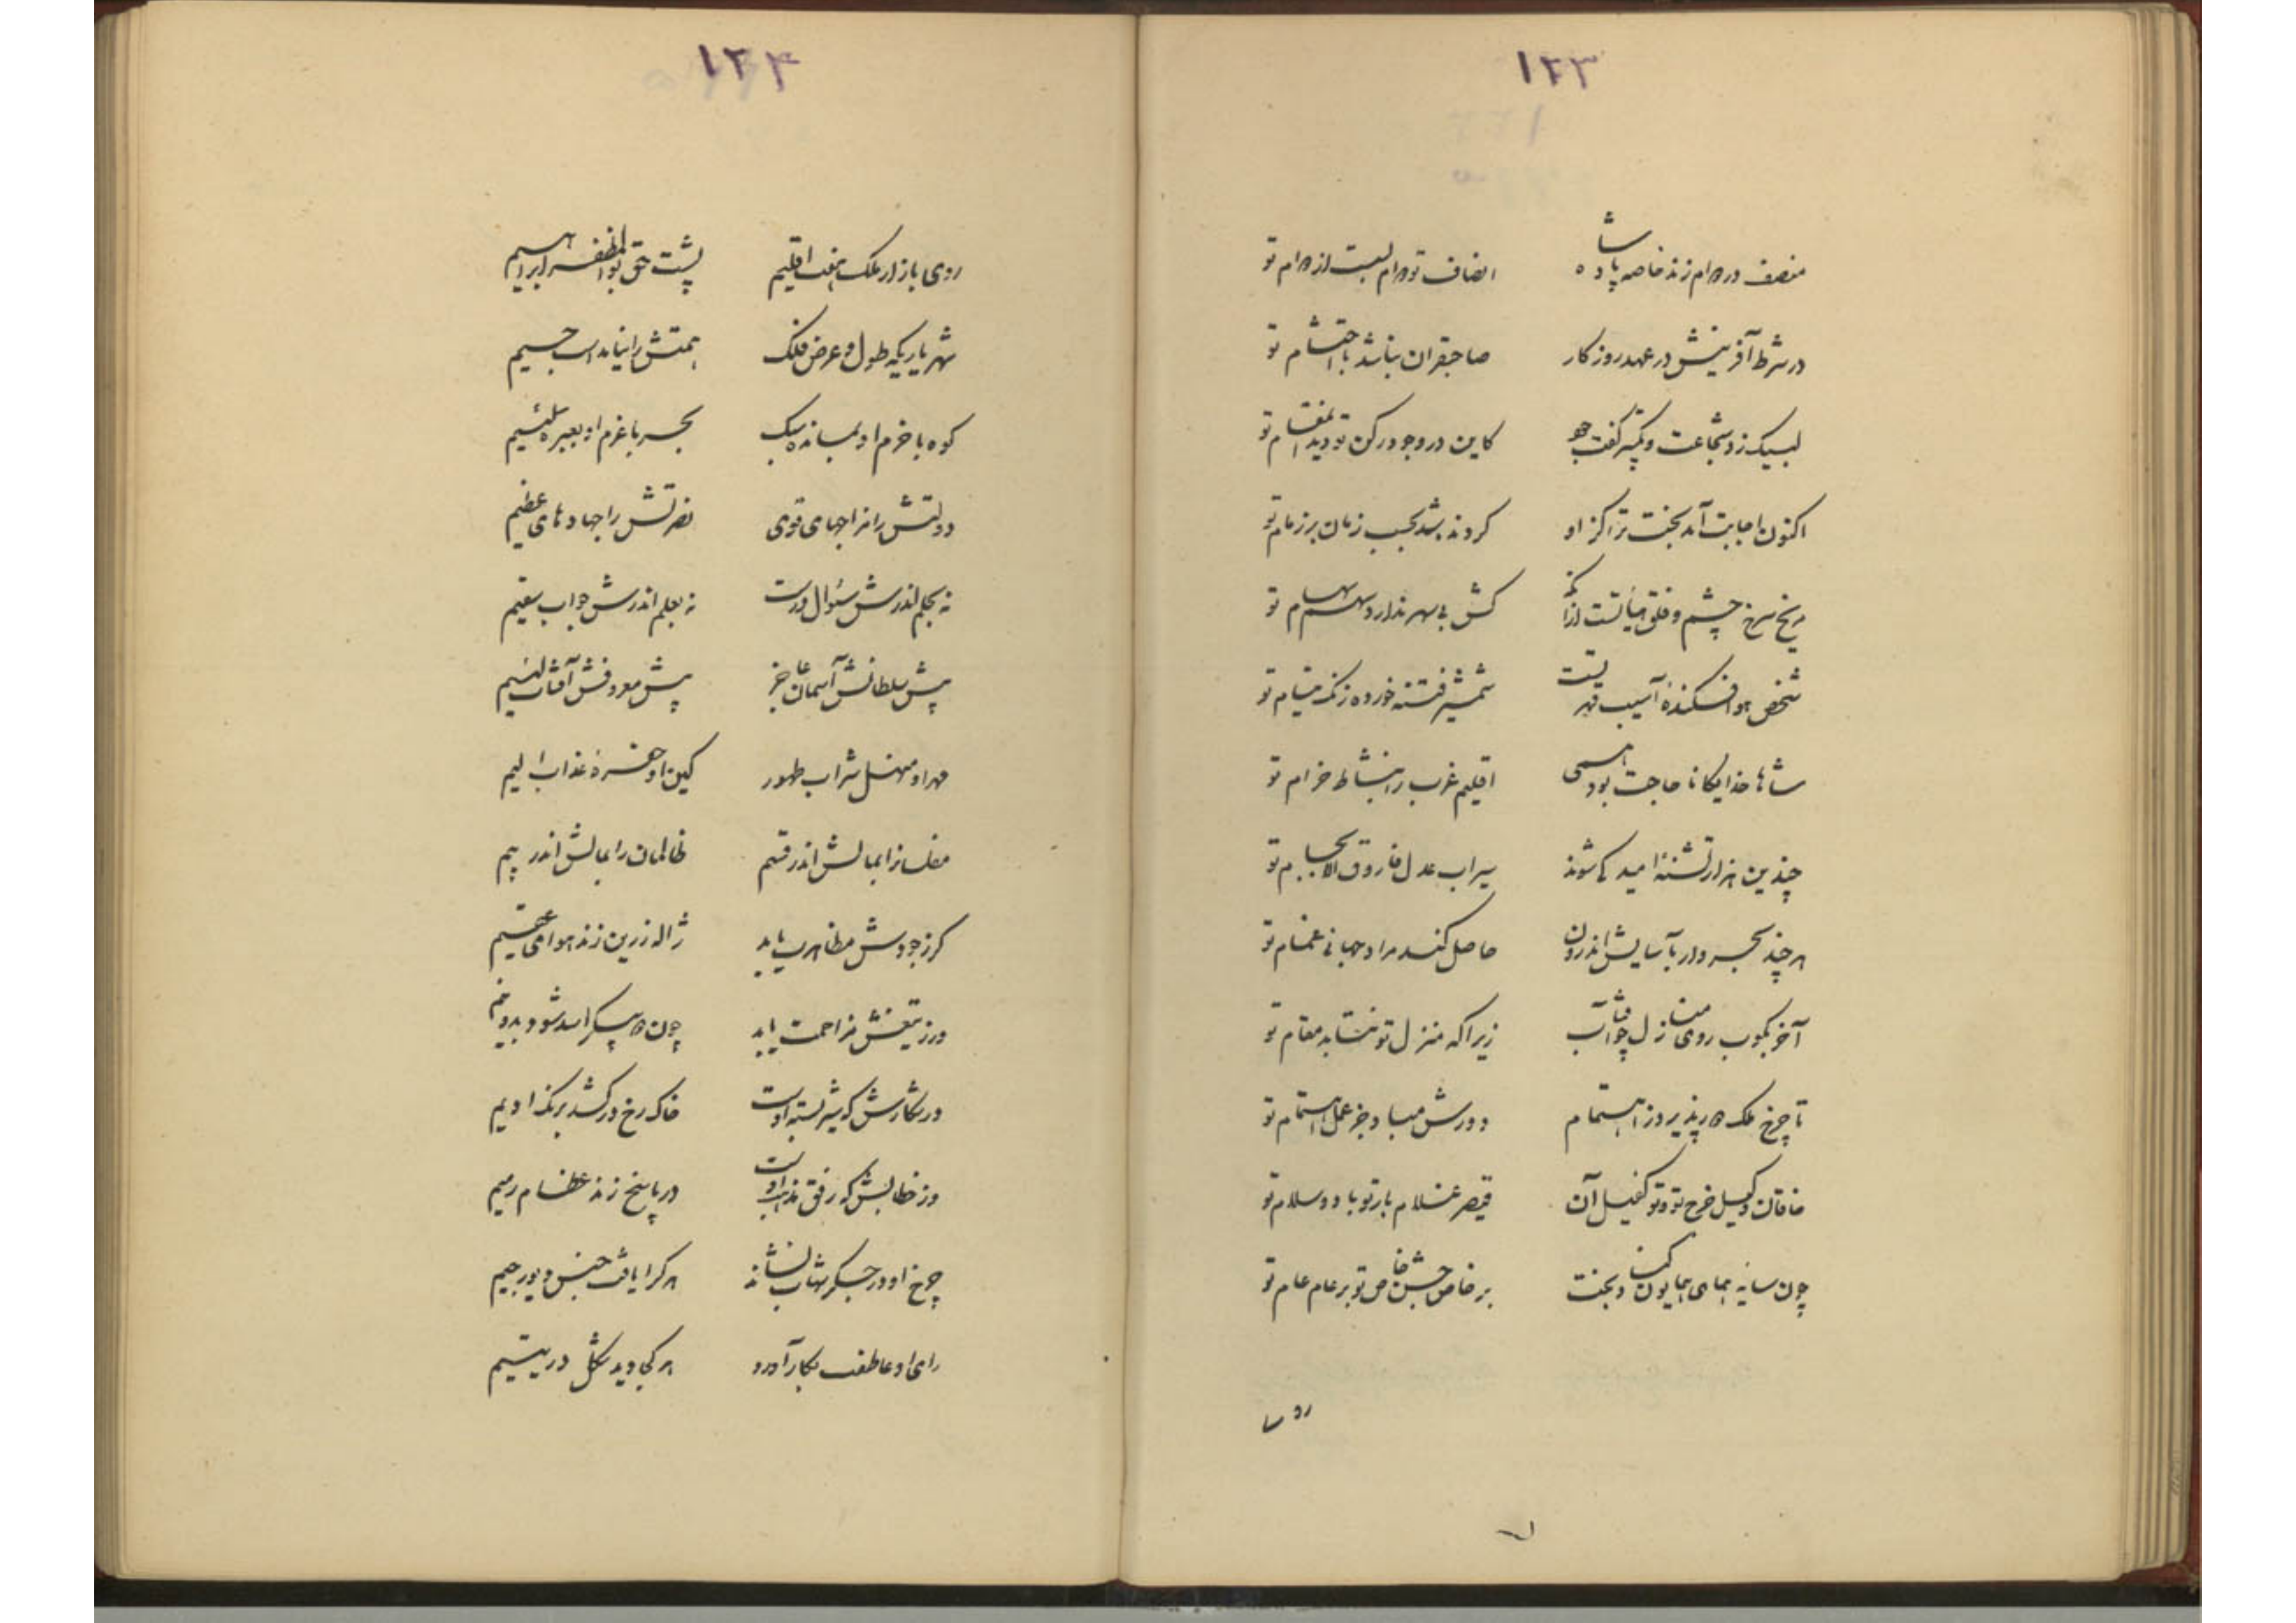 ۱۲۳
منصف در دوام زند خاصه پادشاه انصاف تو دوام لبست از دوام تو
در شرط آفرینش در عهد روزگار صاحبقران نباشد با احتشام تو
لبیک زد شجاعت و تکبیر گفت جو کاین در وجود رکن تو دید استقام تو
اکنون اجابت آمد بخت ترا کز او کردند شد بحسب زمان بر زمام تو
مریخ سرخ چشم و خلق کش بی سهر ندارد سهم سهام تو
شخص هوا فسکنده آسیب قهر تست شمشیر فتنه خورده زنک نیام تو
شاها خدایگانا حاجت بود همی اقلیم غرب را بنشاط خرام تو
چندین هزار تشنهٔ امید کی شوند سیراب عدل فاروق الا بجام تو
هر چند بحر وار بآسایش اندرون حاصل کند مراد جهانی غمام تو
آخر بکوب روی منازل چو آفتاب زیرا که منزل تو نشاید مقام تو
تا چرخ ملک دور پذیرد ز اهتمام دورش مباد جز عمل اهتمام تو
خاقان وکیل خرج تو و تو کفیل آن قیصر غلام بار تو بادو سلام تو
چون سایه همای همایون کناد بخت بر خاص جشن خاص تو بر عام عام تو
روی
۱۲۴
روی بازار ملک هفت اقلیم پشت حق بوالمظفر ابراهیم
شهریاریکه طول و عرض فلک همتش را نیامد اسب جسیم
کوه با حزم او نماند سبک بحر با عزم او بعبره سلیم
دولتش را مزاجهای قوی نصرتش را جهادهای عظیم
نه بحلم اندرش سئوال درست نه بعلم اندرش جواب سقیم
پیش سلطانش آسمان عاجز پیش معروفش آفتاب لئیم
مهر او منهل شراب طهور کین او حفرهٔ عذاب الیم
مفلسانرا بمالش اندر قسم ظالمان را بمالش اندر بیم
کر ز جودش مظاهرت یابد ژاله زرین زند هوای عقیم
ور ز تیغش مزاحمت یابد چون دو پیکر اسد شود بدو نیم
در شکارش که شیر بسته اوست خاک رخ در کشد برنک ادیم
وز خطابش که رفق مذهب اوست در پاسخ زند عظام رمیم
چرخ او در جگر شهاب نشاند هر کرا یافت جنس دیو رجیم
رای او عاطفت بکار آورد هر کجا دید شکل در یتیم